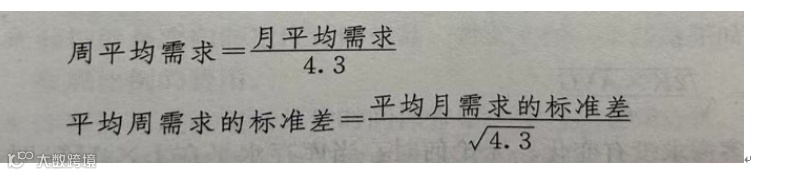 周平均需求=月平均需求/4.3
平均周需求的标准差=平均月需求的标准差/√4.3
大数跨境